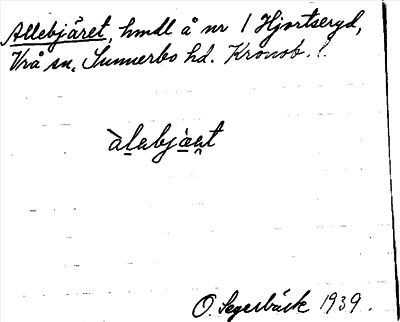 Allebjäret, hmdl å nr 1 Hjortseryd,
Vrå sn, Sunnerbo hd. Kronob. l.
àlebjäret
O. Segerbäck 1939.